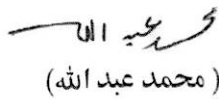 محمد عبد الله
(محمد عبد الله)